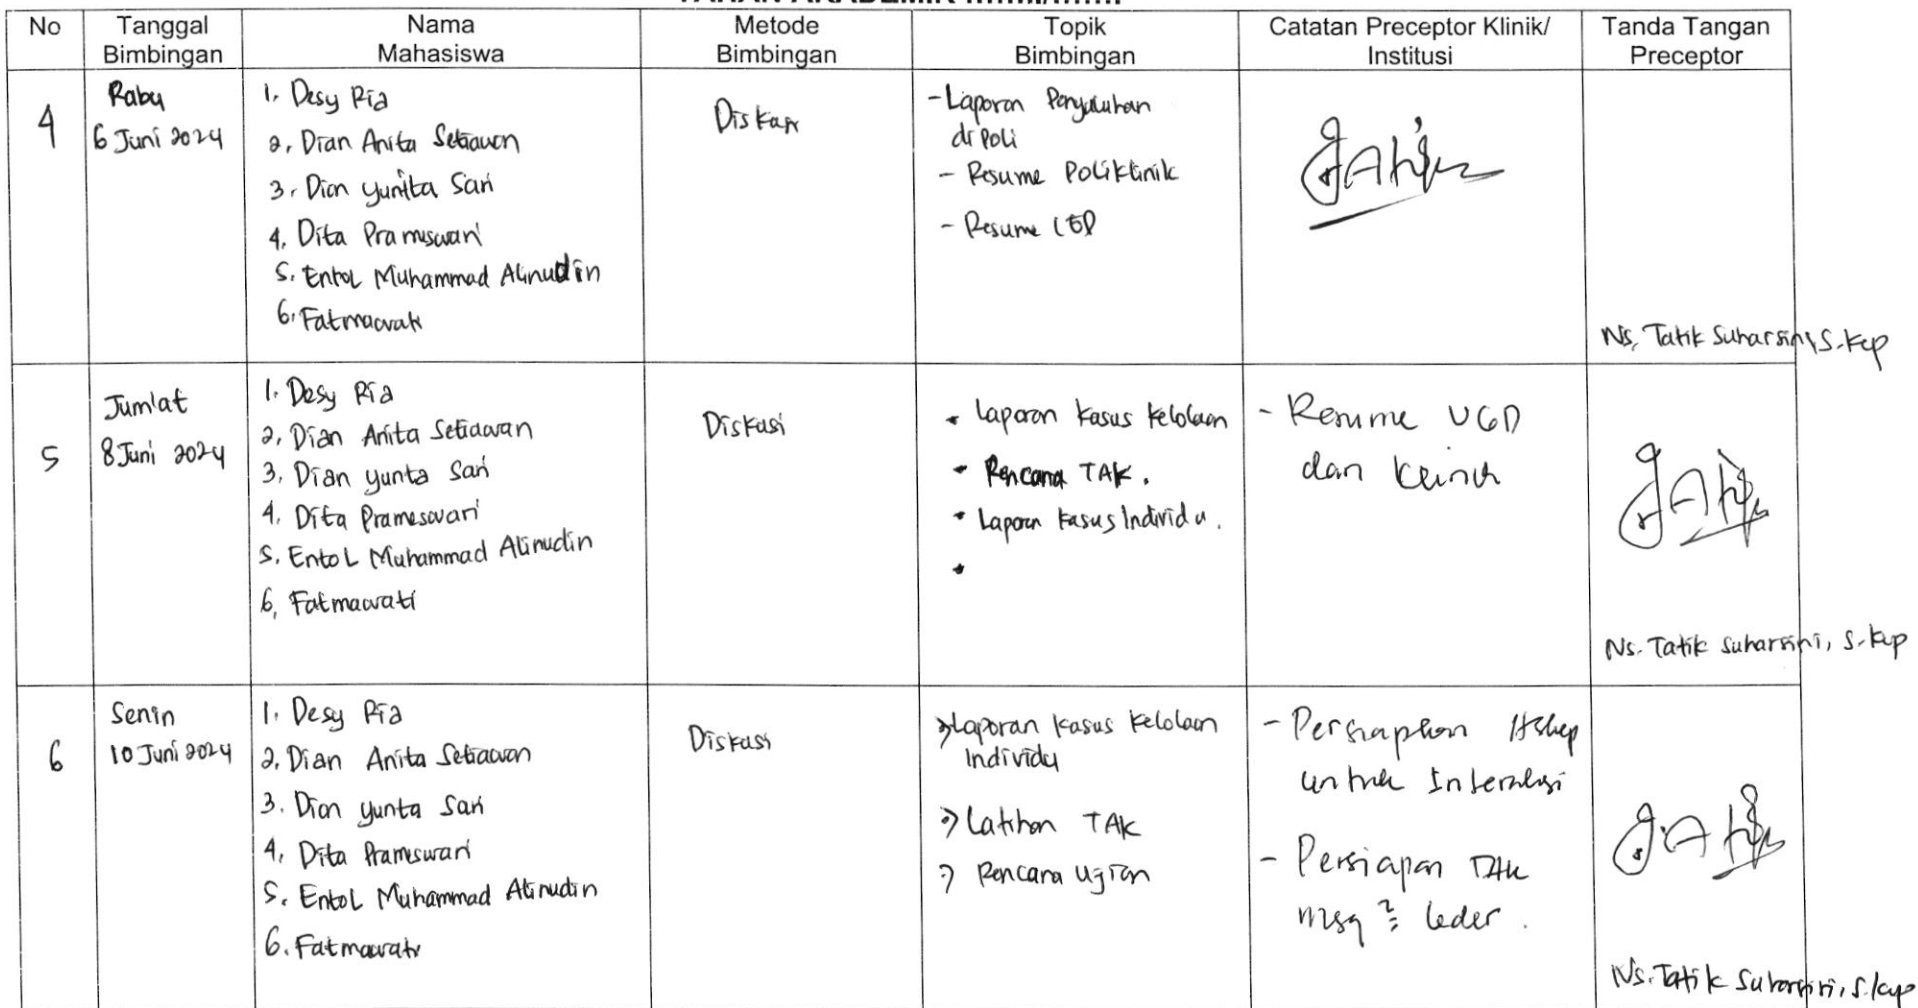 No
Tanggal
Bimbingan
Nama
Mahasiswa
Metode
Bimbingan
Topik
Bimbingan
Catatan Preceptor Klinik/
Institusi
Tanda Tangan
Preceptor
4
Rabu
6 Juni 2024
1. Desy Ria
2. Dian Anita Setiawan
3. Dian yunita Sari
4. Dita Prameswari
5. Entol Muhammad Alinudin
6. Fatmawati
Diskusi
- Laporan Penyuluhan
di Poli
- Resume Poliklinik
- Resume
Ns. Tatik Suharsini, S.Kep
5
Jum'at
8 Juni 2024
1. Desy Ria
2. Dian Anita Setiawan
3. Dian yunta Sari
4. Dita Prameswari
5. Entol Muhammad Alinudin
6. Fatmawati
Diskusi
• Laporan kasus kelolaan
• Rencana TAK.
• Laporan kasus Individu.
•
- Resume UGD
dan
Ns. Tatik Suharsini, S.Kep
6
Senin
10 Juni 2024
1. Desy Ria
2. Dian Anita Setiawan
3. Dian yunta Sari
4. Dita Prameswari
5. Entol Muhammad Alinudin
6. Fatmawati
Diskusi
Laporan kasus kelolaan
Individu
Latihan TAK
Rencana Ujian
- Persiapkan Askep
untuk
- Persiapan TAK
leder.
Ns. Tatik Suharsini, S.Kep